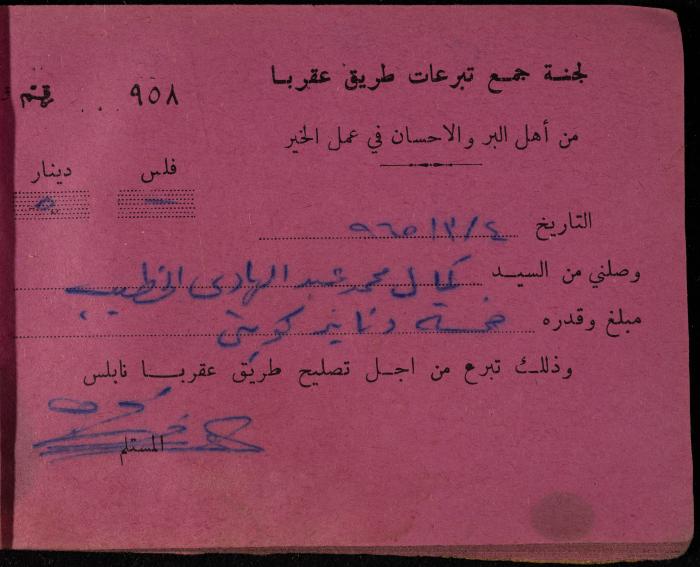 لجنة جمع تبرعات طريق عقربا
٩٥٨
من أهل البر والاحسان في عمل الخير
فلس دينار
التاريخ ٤/٣/٩٦٥
وصلني من السيد كمال محمد عبد الهادي الخطيب
مبلغ وقدره خمسة دنانير كويتي
وذلك تبرع من اجل تصليح طريق عقربا نابلس
المستلم